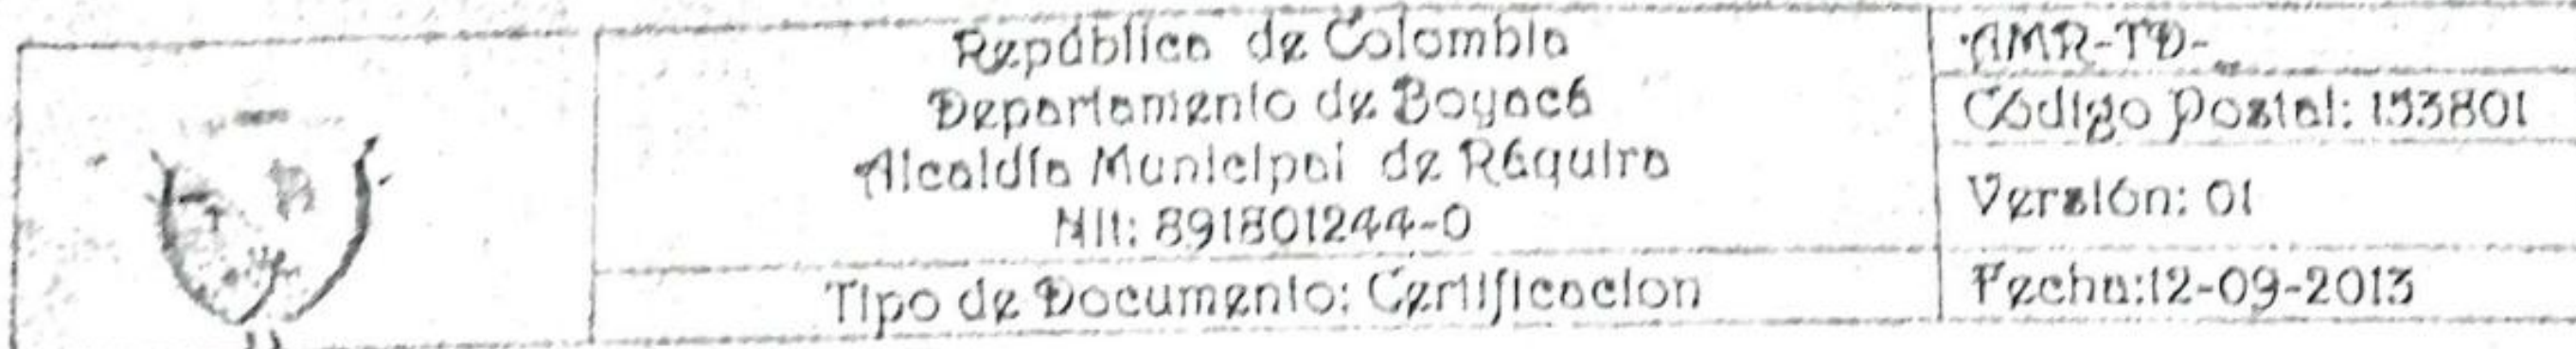 República de Colombia
Departamento de Boyacá
Alcaldía Municipal de Ráquira
Nit: 891801244-0
Tipo de Documento: Certificacion
AMR-TD-_
Código Postal: 153801
Versión: 01
Fecha:12-09-2013